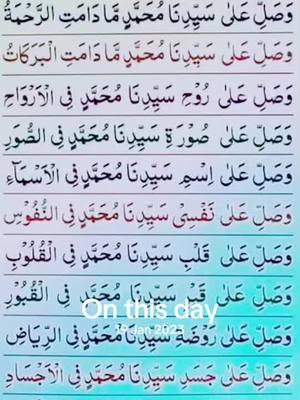 وَصَلِّ عَلٰى سَيِّدِنَا مُحَمَّدٍ مَّا دَامَتِ الرَّحْمَةُ
وَصَلِّ عَلٰى سَيِّدِنَا مُحَمَّدٍ مَّا دَامَتِ الْبَرَكَاتُ
وَصَلِّ عَلٰى رُوْحِ سَيِّدِنَا مُحَمَّدٍ فِى الْاَرْوَاحِ
وَصَلِّ عَلٰى صُوْرَةِ سَيِّدِنَا مُحَمَّدٍ فِى الصُّوَرِ
وَصَلِّ عَلٰى اِسْمِ سَيِّدِنَا مُحَمَّدٍ فِى الْاَسْمَآءِ
وَصَلِّ عَلٰى نَفْسِ سَيِّدِنَا مُحَمَّدٍ فِى النُّفُوْسِ
وَصَلِّ عَلٰى قَلْبِ سَيِّدِنَا مُحَمَّدٍ فِى الْقُلُوْبِ
وَصَلِّ عَلٰى قَبْرِ سَيِّدِنَا مُحَمَّدٍ فِى الْقُبُوْرِ
On this day
19 Jan 2023
وَصَلِّ عَلٰى رَوْضَةِ سَيِّدِنَا مُحَمَّدٍ فِى الرِّيَاضِ
وَصَلِّ عَلٰى جَسَدِ سَيِّدِنَا مُحَمَّدٍ فِى الْاَجْسَادِ